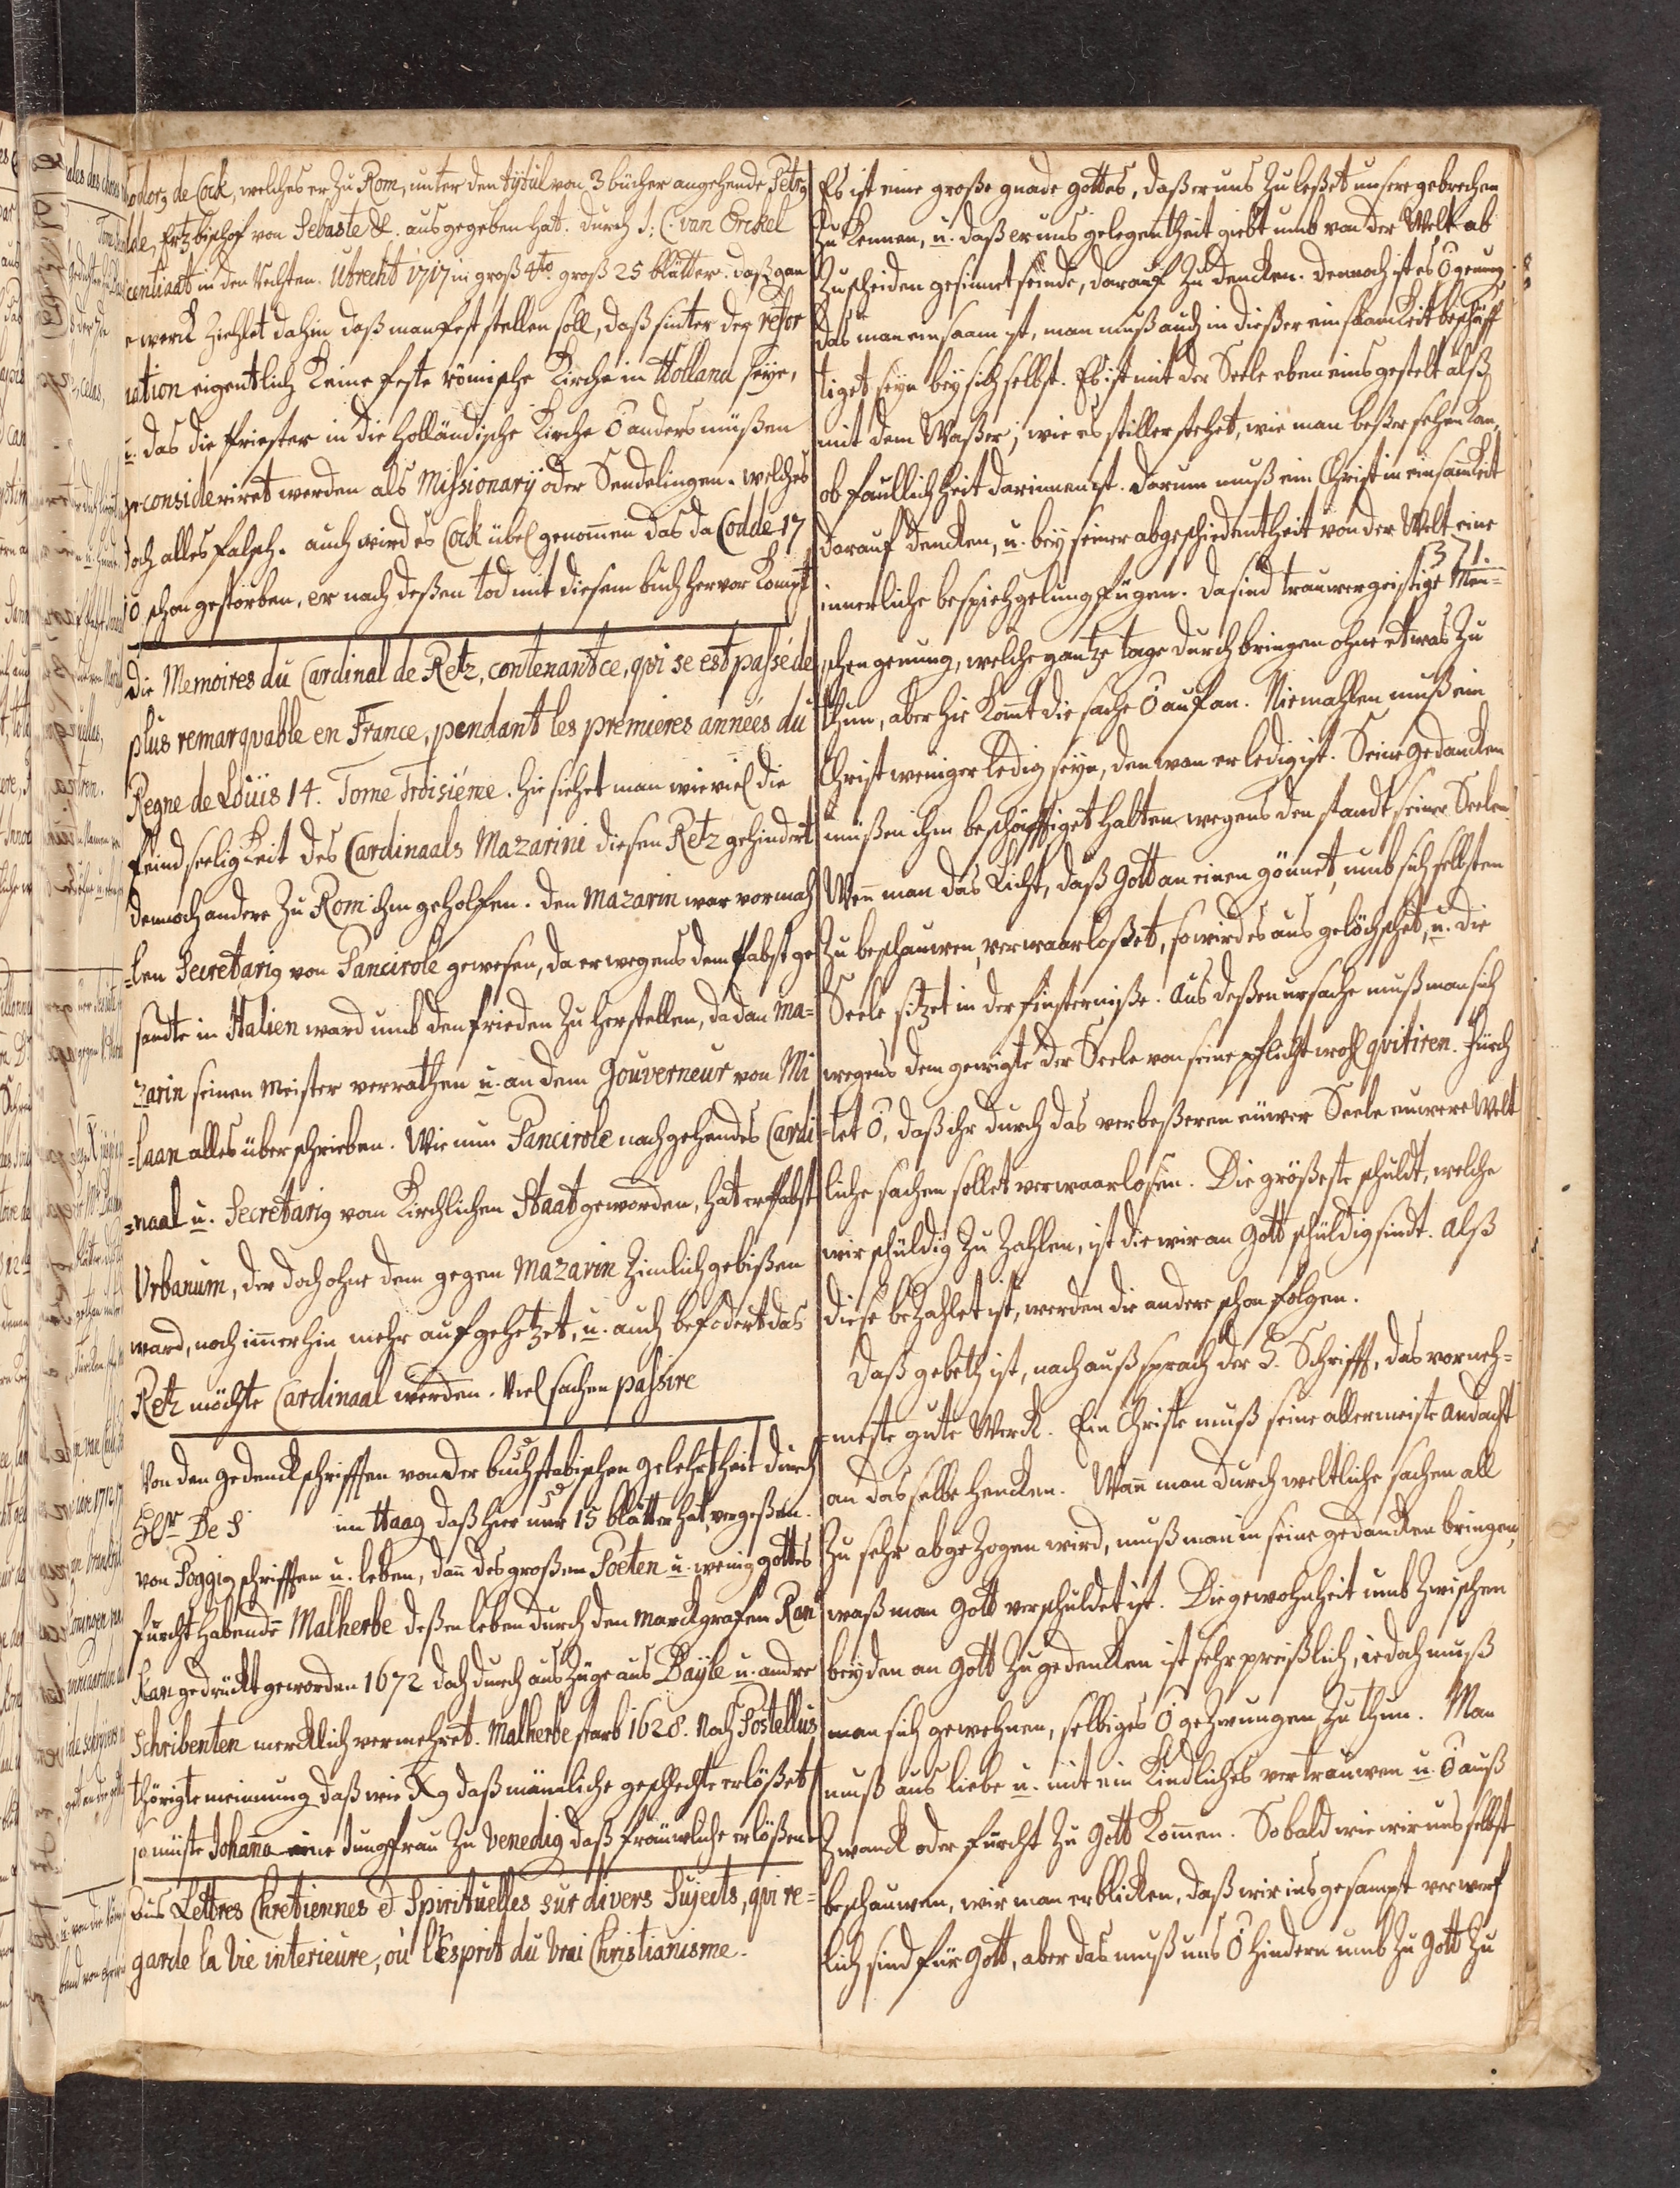 odorꝫ de Cock, welches er zu Rom, unter den tytul von 3 bücher angehende Petrꝫ
Ertzbischof von Sebaste &. ausgegeben hat. durch J: C. van Erckel
centiaat in den Rechten. Utrecht 1717 in groß 4to. groß 25 blätter. daß gan
werck ziehlet dahin daß man fest stellen soll, daß sinter der refor
ation eigentlich keine feste römische Kirche in Holland seye,
u. das die Priester in die holländische Kirche O anders müßen
geconsidereret werden als Missionarij oder Sendelingen. welches
doch alles falsch. auch wird es Cock übel genomen das da Codde 17
10 schon gestorben, er nach deßen tod mit diesem buch hervor kompt
Die Memoires du Cardinal de Retz, contenant ce, qvi se est passé de
plus remarqvable en France, pendant les premieres années du
Regne de Loüis 14. Tome Troisiéme. hie siehet man wie viel die
feindseeligkeit des Cardinaals Mazarini diesen Retz gehindert
dennoch andere zu Rom ihm geholfen. den Mazarin war vormah
=len Secretariꝫ von Pancirole gewesen, da er wegens dem Pabst ge
sandte in Italien ward umb den frieden zu herstellen, da dan Ma=
zarin seinen meister verrathen u. an dem Gouverneur von Mi
=laan alles überschrieben. Wie nun Pancirole nachgehendes Cardi
=naal u. Secretariꝫ vom Kirchlichen Staat geworden, hat er Pabst
Urbanum, der doch ohne dem gegen Mazarin zimlich gebißen
ward, noch imerhin mehr aufgehetzet, u. auch befodert das
Retz möchte Cardinaal werden. Viel sachen passire
Von den gedenckschrifften von der buchstabischen gelehrtheit durch
Hr De S im Haag daß hier nur 15 blätter hat, vergeßen.
von Poggiꝫ schrifften u. leben, dan des großen Poeten u. wenig gottes
furcht habende Malherbe deßen leben durch den Marckgrafen Ran
kan gedruckt geworden 1672 doch durch auszüge aus Bayle u. andre
Schribenten mercklich vermehret. Malherbe starb 1628. Noch Postellus
thörigte meinung daß wie Xꝫ daß mänliche geschlechte erlößet
so müste Johana eine Jungfrau zu Venedig daß fräuwliche erlößen
Aus Lettres Chretiennes et Spirituelles sur divers Sujects, qvi re=
garde la vie interieure, où l'Esprit du Vrai Christianisme.
Es ist eine große gnade gottes, daß er uns zuleßet unsere gebrechen
zu kennen, u. daß er uns gelegentheit giebt umb von der Welt ab
zuscheiden gesinnet seinde, darauf zu dencken. dennoch ist es O genung,
das man einsaam ist, man muß auch in dießer einsamkeit beschäff
tiget seyn bey sich selbst. Es ist mit der Seele eben eins gestelt alß
mit dem Waßer; wie es stiller stehet, wie man beßer sehen kan,
ob faullichheit darinnen ist. darum muß ein Christ in einsamkeit
darauf dencken, u. bey seiner abgeschiedentheit von der Welt eine
371.
innerliche bespiehgelung fügen. Da sind trauwergeistige Men=
schen genung, welche gantze tage durch bringen ohne etwas zu
thun, aber hie komt die sache O auf an. Niemahlen muß ein
Christ weniger ledig seyn, den wan er ledig ist. Seine gedancken
müßen ihm beschäfftiget halten wegens den standt seiner Seelen.
Wen man das Licht, daß Gott an einen gönnet, umb sich selbsten
zu beschauwen, verwaarloßet, so wird es ausgelöchschet, u. die
Seele sitzet in der finsterniße. Aus deßen ursache muß man sich
wegens dem gewigte der Seele von seine pflicht wohl qvitiren. Fürch
=tet O, daß ihr durch das verbeßeren euwer Seele euwere Welt
liche sachen sollet verwaarlosen. Die größeste schuldt, welche
wir schuldig zu zahlen, ist die wir an Gott schuldig sindt. Alß
diese bezahlet ist, werden die andere schon folgen.
Daß gebeth ist, nach außsprach der H. Schrifft, das vorneh=
=meste gute Werck. Ein Christe muß seine allermeiste andacht
an dasselbe hencken. Wan man durch weltliche sachen all
zu sehr abgezogen wird, muß man in seine gedancken bringen,
waß man Gott verschuldet ist. Die gewohnheit umb zwischen
beyden an Gott zugedencken ist sehr preißlich, iedoch muß
man sich gewehnen, selbiges O gezwungen zu thun. Man
muß aus liebe u. mit ein Kindliches vertrauwen u. O auß
Zwanck oder furcht zu Gott komen. So bald wie wir uns selbst
beschauwen, wir man erblicken, daß wir insgesampt verwerf
lich sind für Gott, aber das muß uns O hindern umb zu Gott zu